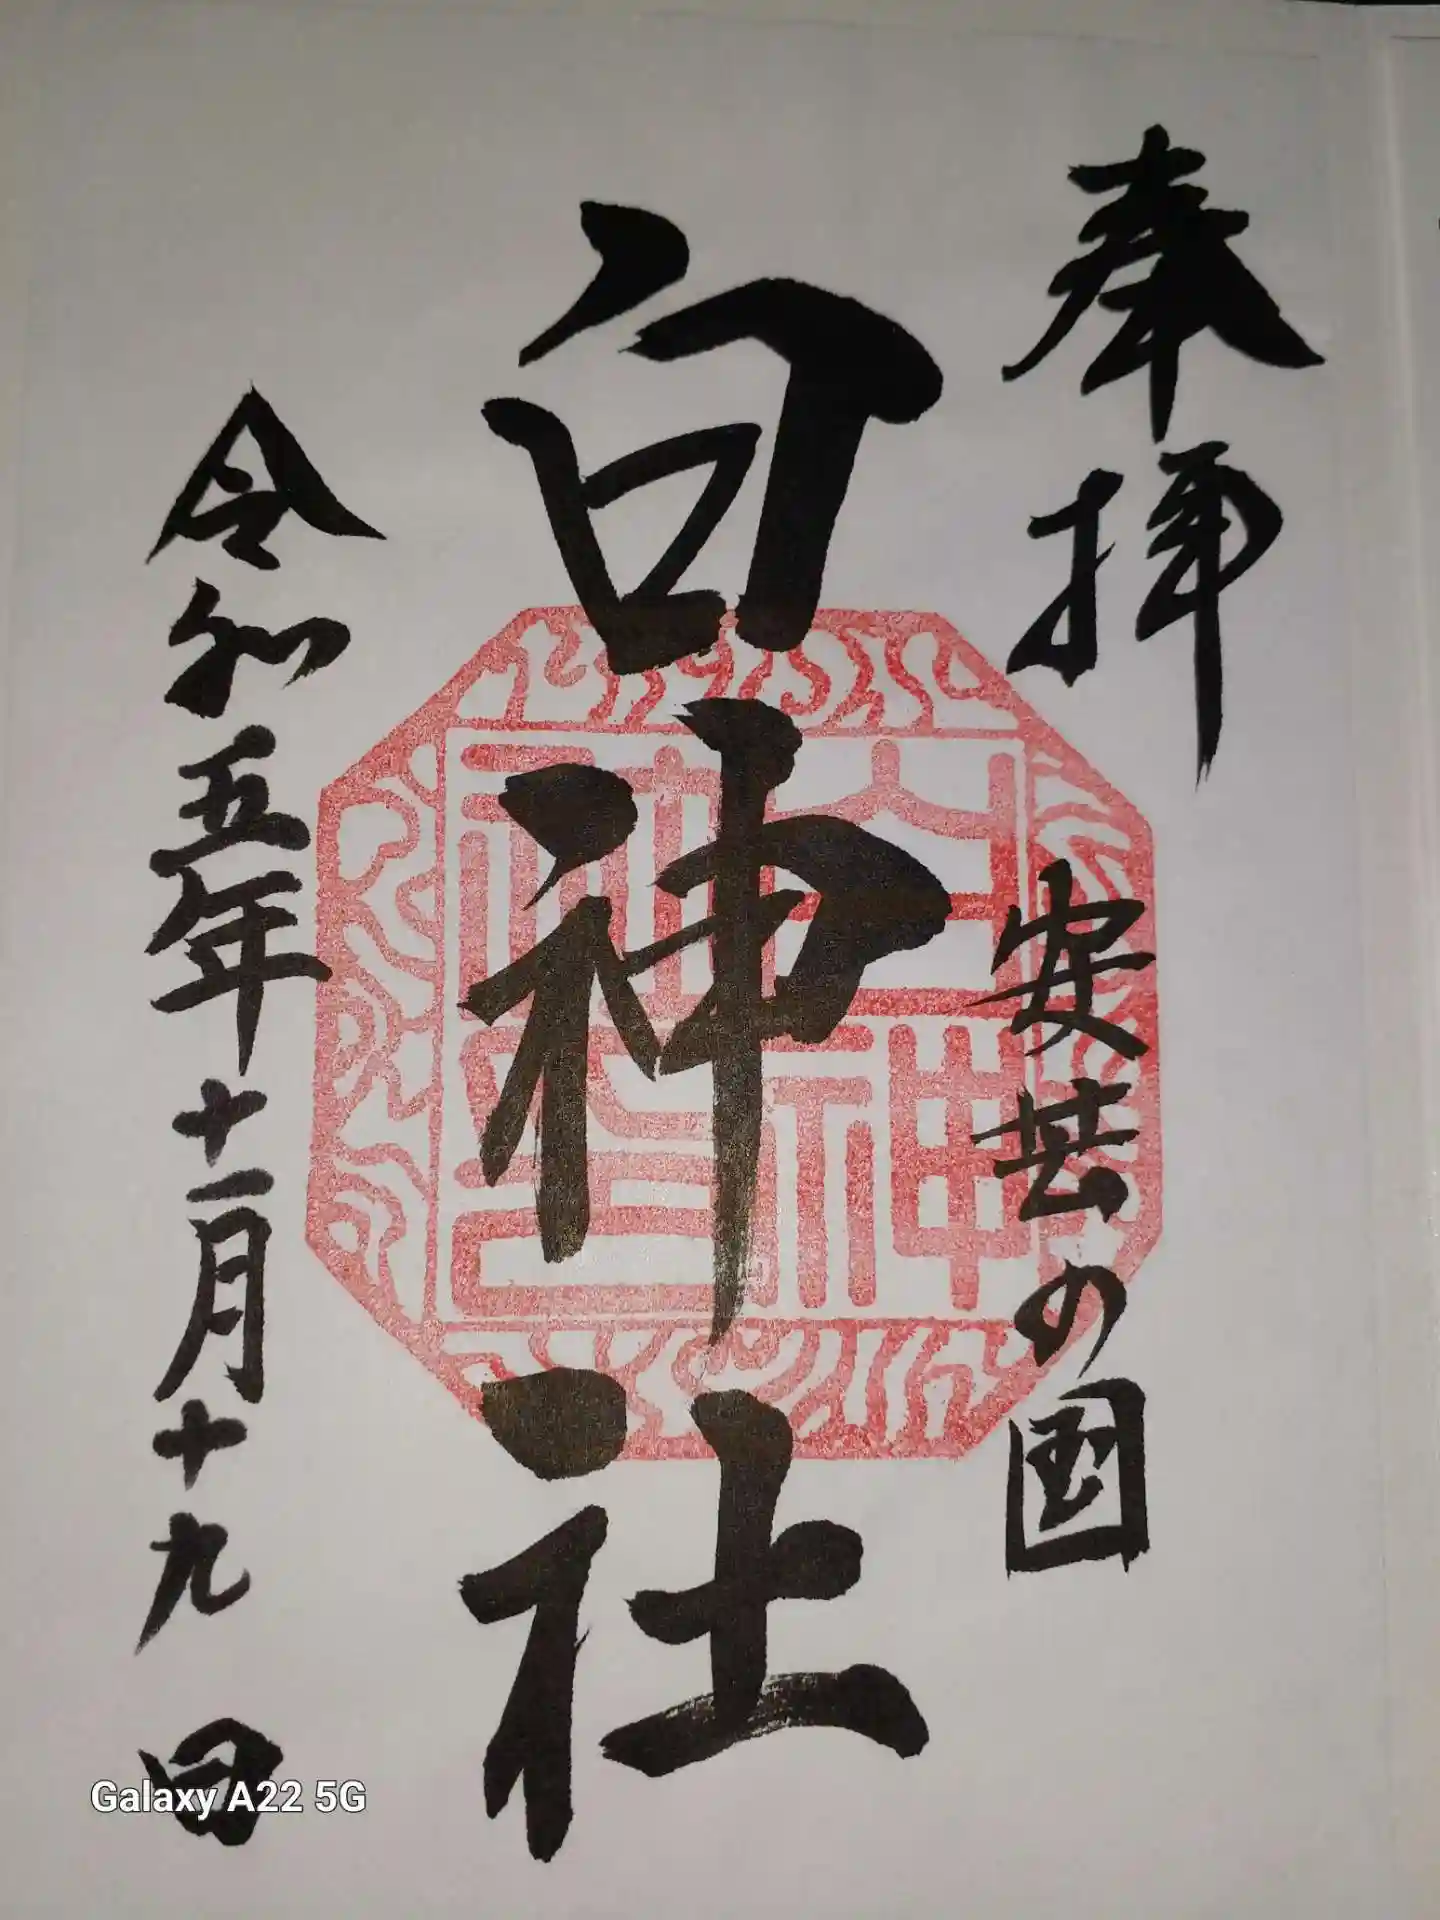 奉拝
安芸の国
白神社
令和五年十一月十九日
白神社神璽
Galaxy A22 5G